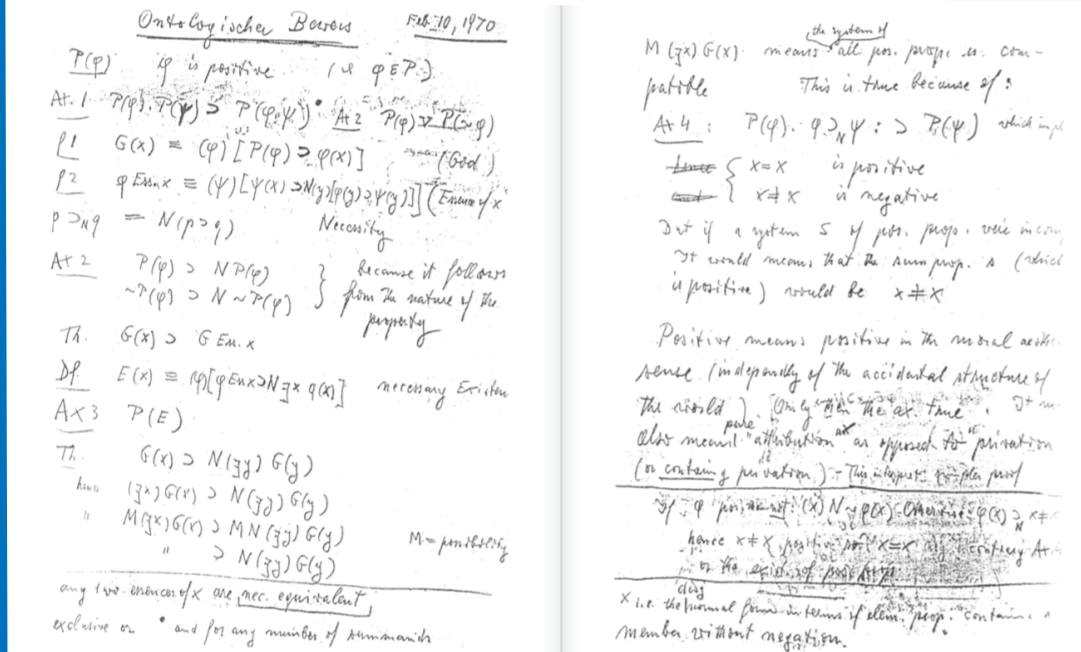 Ontologischer Beweis Feb 10, 1970
P(φ) φ is positive (i.e. φ ∈ P.)
At. 1 P(φ).P(ψ) ⊃ P(φ.ψ)• At 2 P(φ) ∨ P(~φ)
P1 G(x) ≡ (φ)[P(φ) ⊃ φ(x)] (God)
P2 φ Ess. x ≡ (ψ)[ψ(x) ⊃ N(y)[φ(y) ⊃ ψ(y)]] (Essence of x
p ⊃N q = N(p ⊃ q) Necessity
At 2 P(φ) ⊃ N P(φ) } because it follows
~P(φ) ⊃ N ~P(φ) } from the nature of the
property
Th. G(x) ⊃ G Ess. x
Df. E(x) ≡ (φ)[φ Ess x ⊃ N ∃x φ(x)] necessary Existen
Ax 3 P(E)
Th. G(x) ⊃ N(∃y) G(y)
hence (∃x) G(x) ⊃ N(∃y) G(y)
" M(∃x) G(x) ⊃ MN(∃y) G(y)
" ⊃ N(∃y) G(y) M = possibility
any two essences of x are nec. equivalent
exclusive or • and for any number of summands
the system of
M (∃x) G(x) means all pos. prope is com-
patible This is true because of :
At 4 : P(φ). φ ⊃N ψ : ⊃ P(ψ) which impl
{ x = x is positive
{ x ≠ x is negative
But if a system S of pos. prop. were incom
It would mean, that the sum prop. s (which
is positive) would be x ≠ x
Positive means positive in the moral aesthe
sense (independly of the accidental structure of
the world). Only then the ax. true. It m
pure
also mean "attribution" as opposed to "privation
(or containing privation.) – This interpret. simpler proof
If φ (x) N ~φ(x) Otherwise: φ(x) ⊃N x ≠
hence x ≠ x positive x = x contrary At
or the exist. of pos.
disj
x i.e. the normal form in terms of elem. prop. contains a
member without negation.